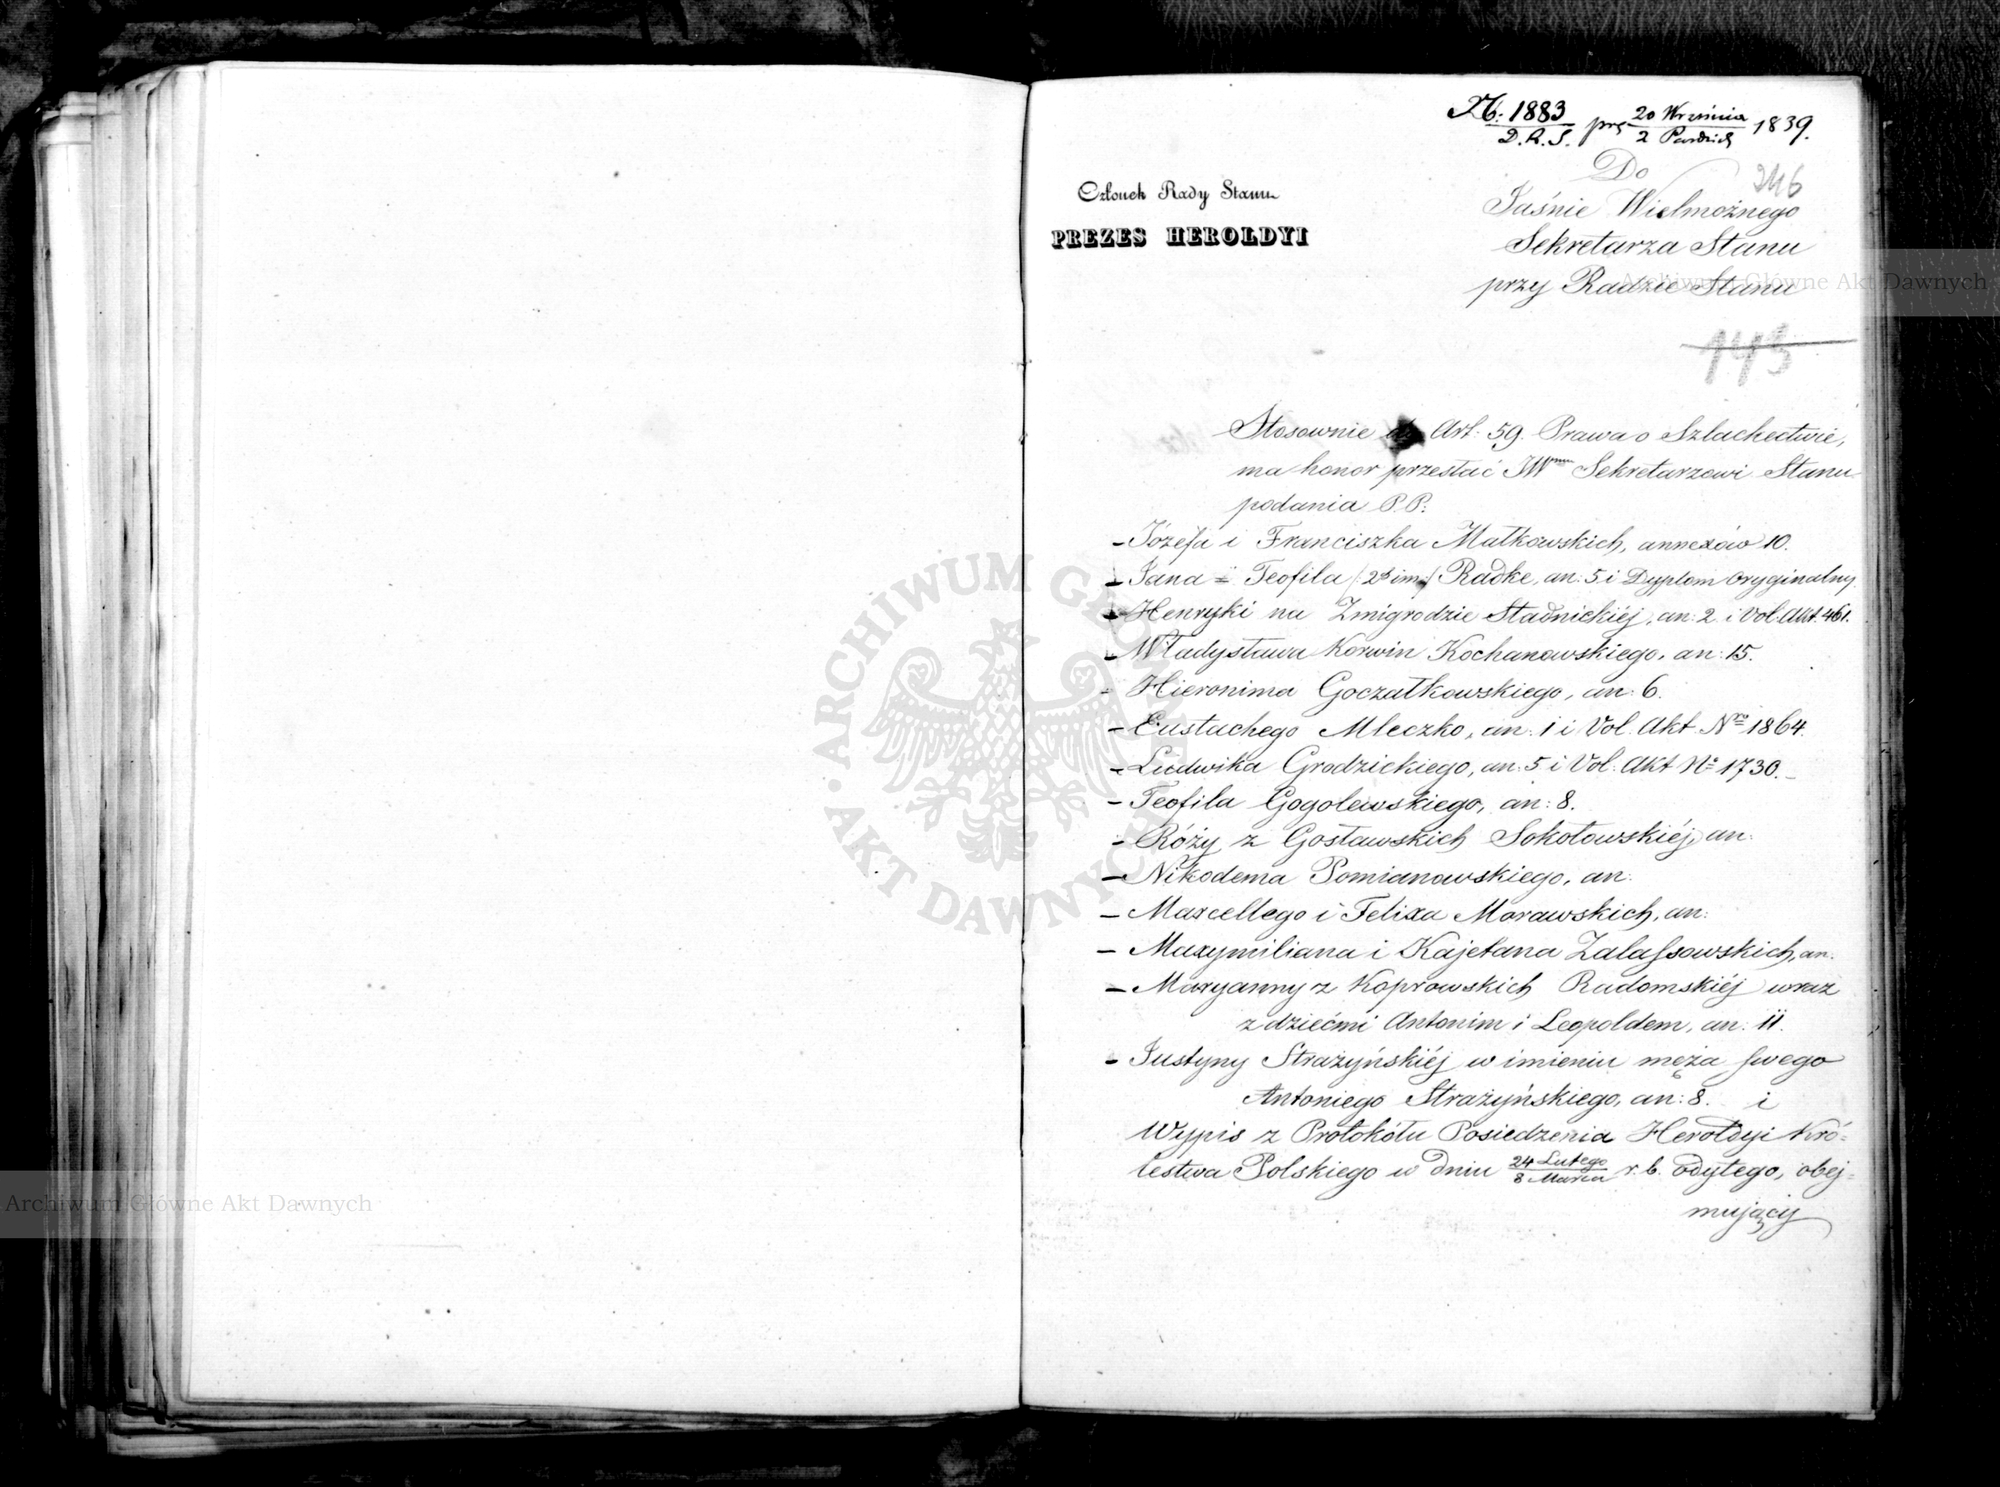 №: 1883 / D.R.S. prę 20 Września / 2 Paźdzch 1839.
Do
246
Członek Rady Stanu
PREZES HEROLDYI
Jaśnie Wielmożnego
Sekretarza Stanu
przy Radzie Stanu
143
Stosownie do Art: 59. Prawa o Szlachectwie,
ma honor przesłać JWmu Sekretarzowi Stanu
podania P.P:
– Józefa i Franciszka Małkowskich, annexów 10.
– Jana = Teofila /: 2ch im:/ Radke, an: 5 i Dyplom oryginalny.
– Henryki na Żmigrodzie Stadnickiéj, an: 2 i Vol. Akt. 461.
– Władysława Korwin Kochanowskiego, an: 15.
– Hieronima Goczałkowskiego, an: 6.
– Eustachego Mleczko, an: 1 i Vol. Akt. Nro 1864.
– Ludwika Grodzickiego, an: 5 i Vol. Akt No 1730.
– Teofila Gogolewskiego, an: 8.
– Róży z Gosławskich Sokołowskiéj, an:
– Nikodema Pomianowskiego, an:
– Marcellego i Felixa Morawskich, an:
– Maxymiliana i Kajetana Zalassowskich, an:
– Maryanny z Koprowskich Radomskiéj wraz
z dziećmi Antonim i Leopoldem, an: 11.
– Justyny Strażyńskiéj w imieniu męża swego
Antoniego Strażyńskiego, an: 8. i
Wypis z Protokółu Posiedzenia Heroldyi Kró-
lestwa Polskiego w dniu 24 Lutego / 8 Marca r. b. odbytego, obej-
mujący
Archiwum Główne Akt Dawnych
Archiwum Główne Akt Dawnych
ARCHIWUM GŁÓWNE AKT DAWNYCH